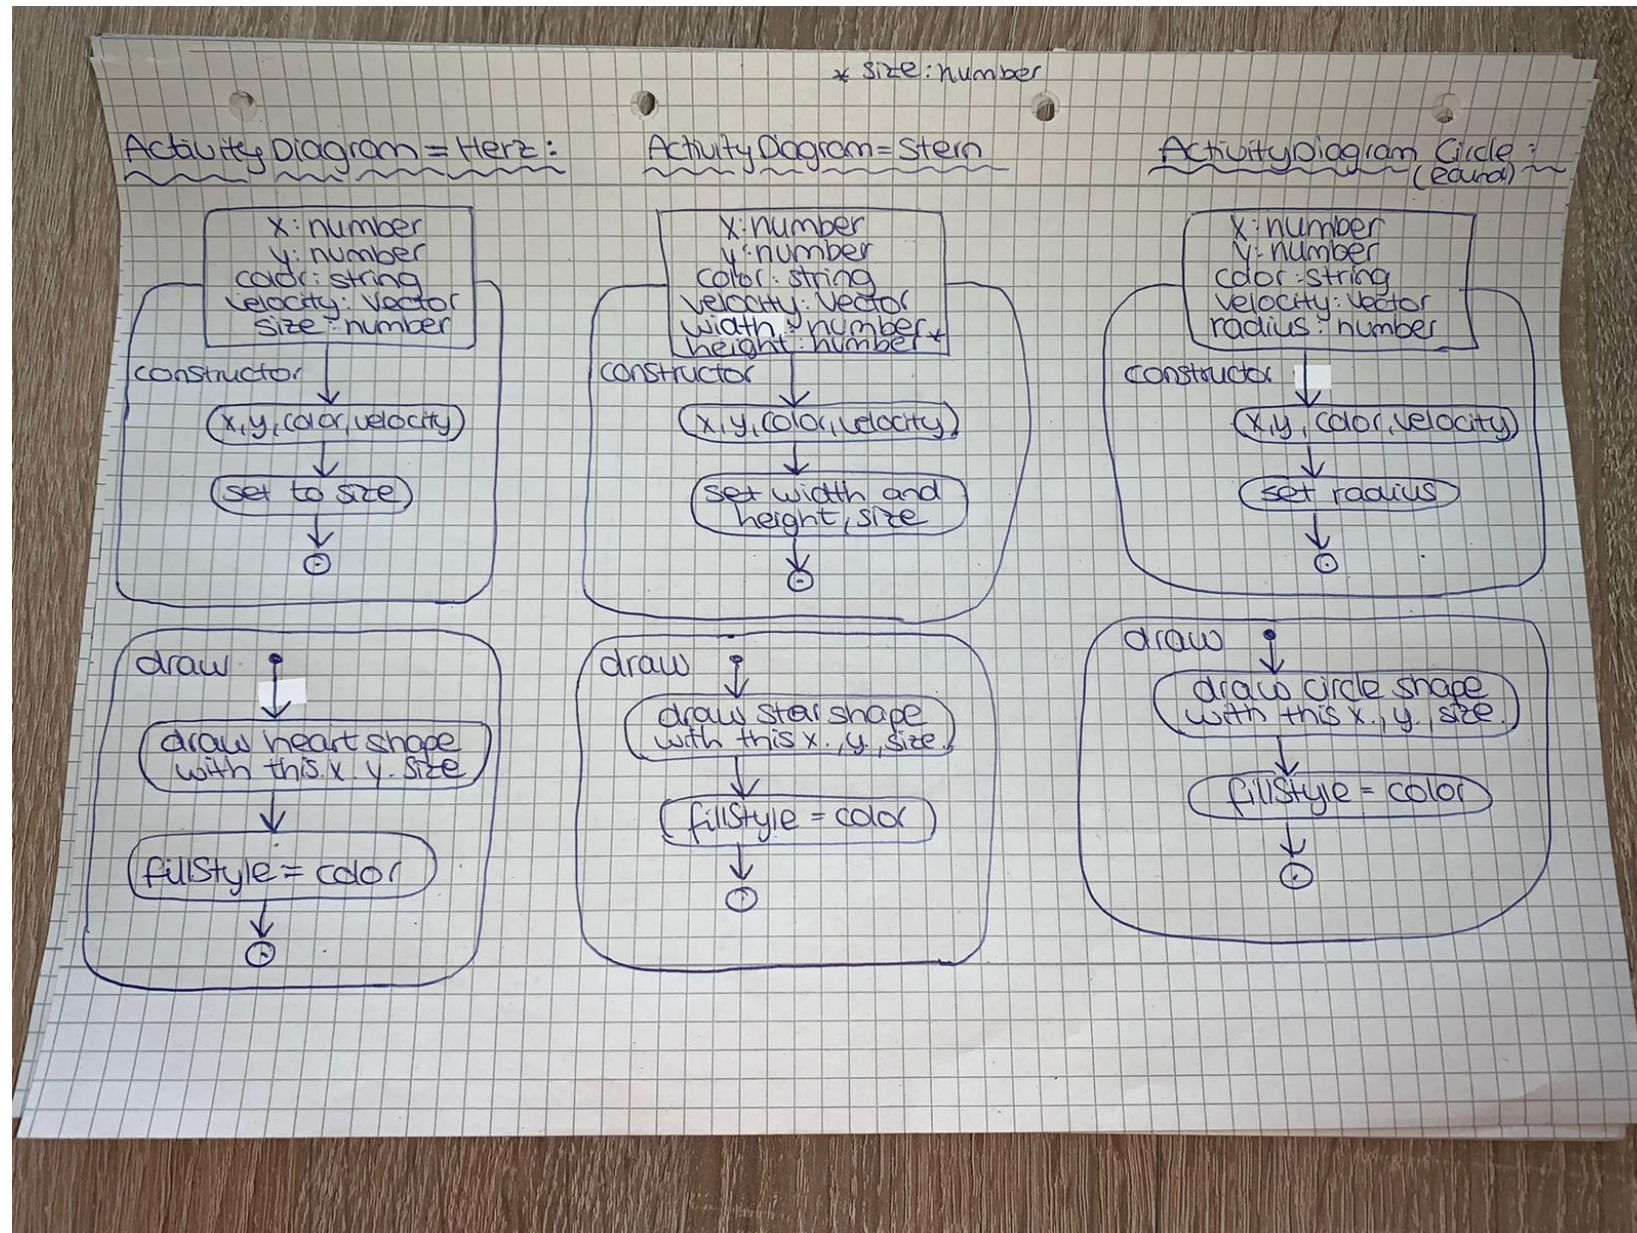 * size: number
Activity Diagram = Herz:
x: number
y: number
color: string
velocity: Vector
size: number
constructor
x, y, color, velocity
set to size
draw
draw heart shape
with this x. y. size
fillStyle = color
Activity Diagram = Stern
x: number
y: number
color: string
velocity: Vector
width: number
height: number *
constructor
x, y, color, velocity
set width and
height, size
draw
draw star shape
with this x., y., size
fillStyle = color
Activity Diagram Circle:
x: number
y: number
color: string
velocity: Vector
radius: number
constructor
x, y, color, velocity
set radius
draw
draw circle shape
with this x., y., size
fillStyle = color